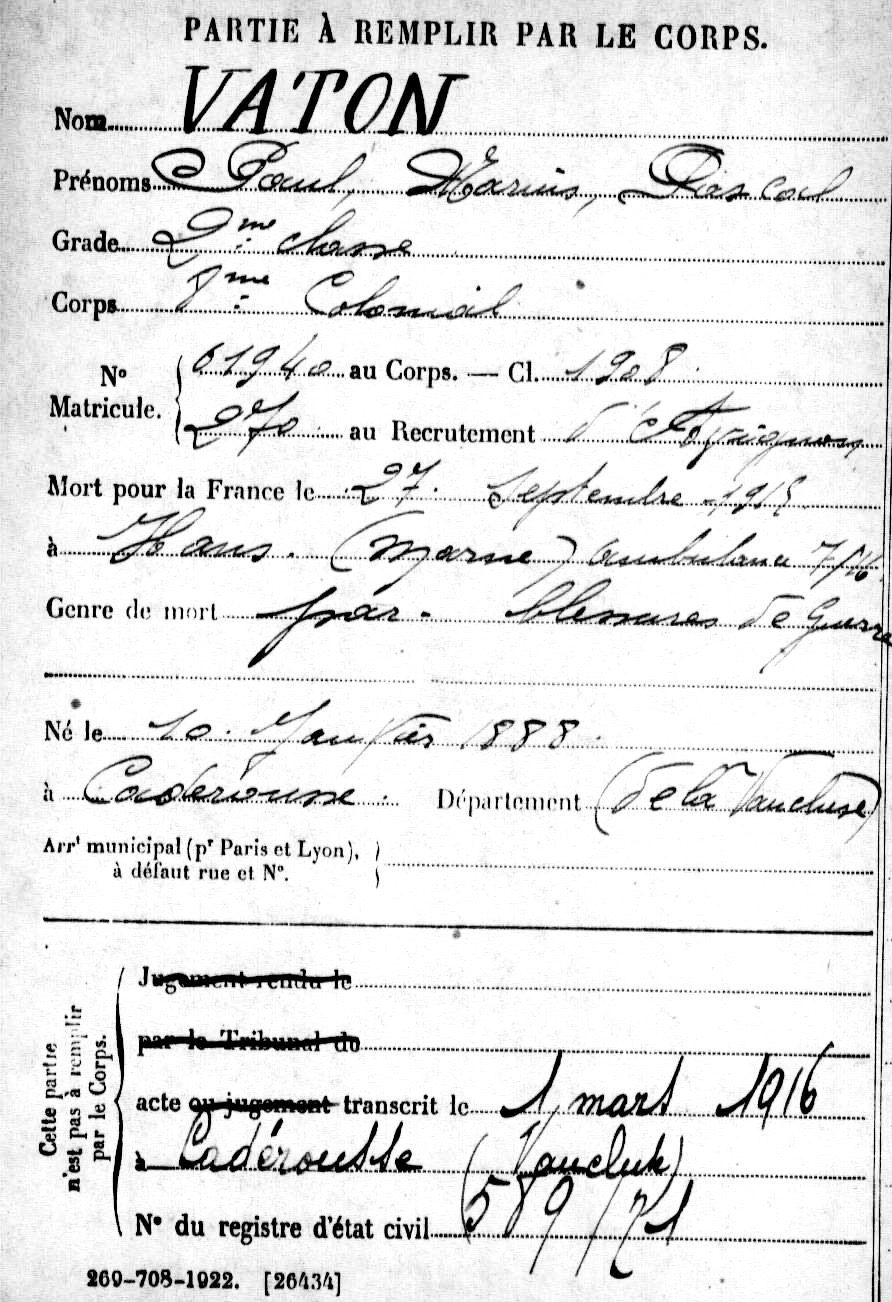 PARTIE À REMPLIR PAR LE CORPS.
Nom VATON
Prénoms Paul, Marius, Pascal
Grade 2me classe
Corps 8me Colonial
No Matricule. 61940 au Corps. — Cl. 1908
270 au Recrutement d'Avignon
Mort pour la France le 27 Septembre 1915
à Hans. (Marne) ambulance 7/16
Genre de mort par blessures de Guerre
Né le 10 Janvier 1888
à Caderousse. Département (de la Vaucluse)
Arrt municipal (pr Paris et Lyon),
à défaut rue et No.
Cette partie n'est pas à remplir par le Corps.
Jugement rendu le
par le Tribunal de
acte ou jugement transcrit le 1 mars 1916
à Cadérousse (Vaucluse)
No du registre d'état civil 589/71
269-708-1922. [26434]